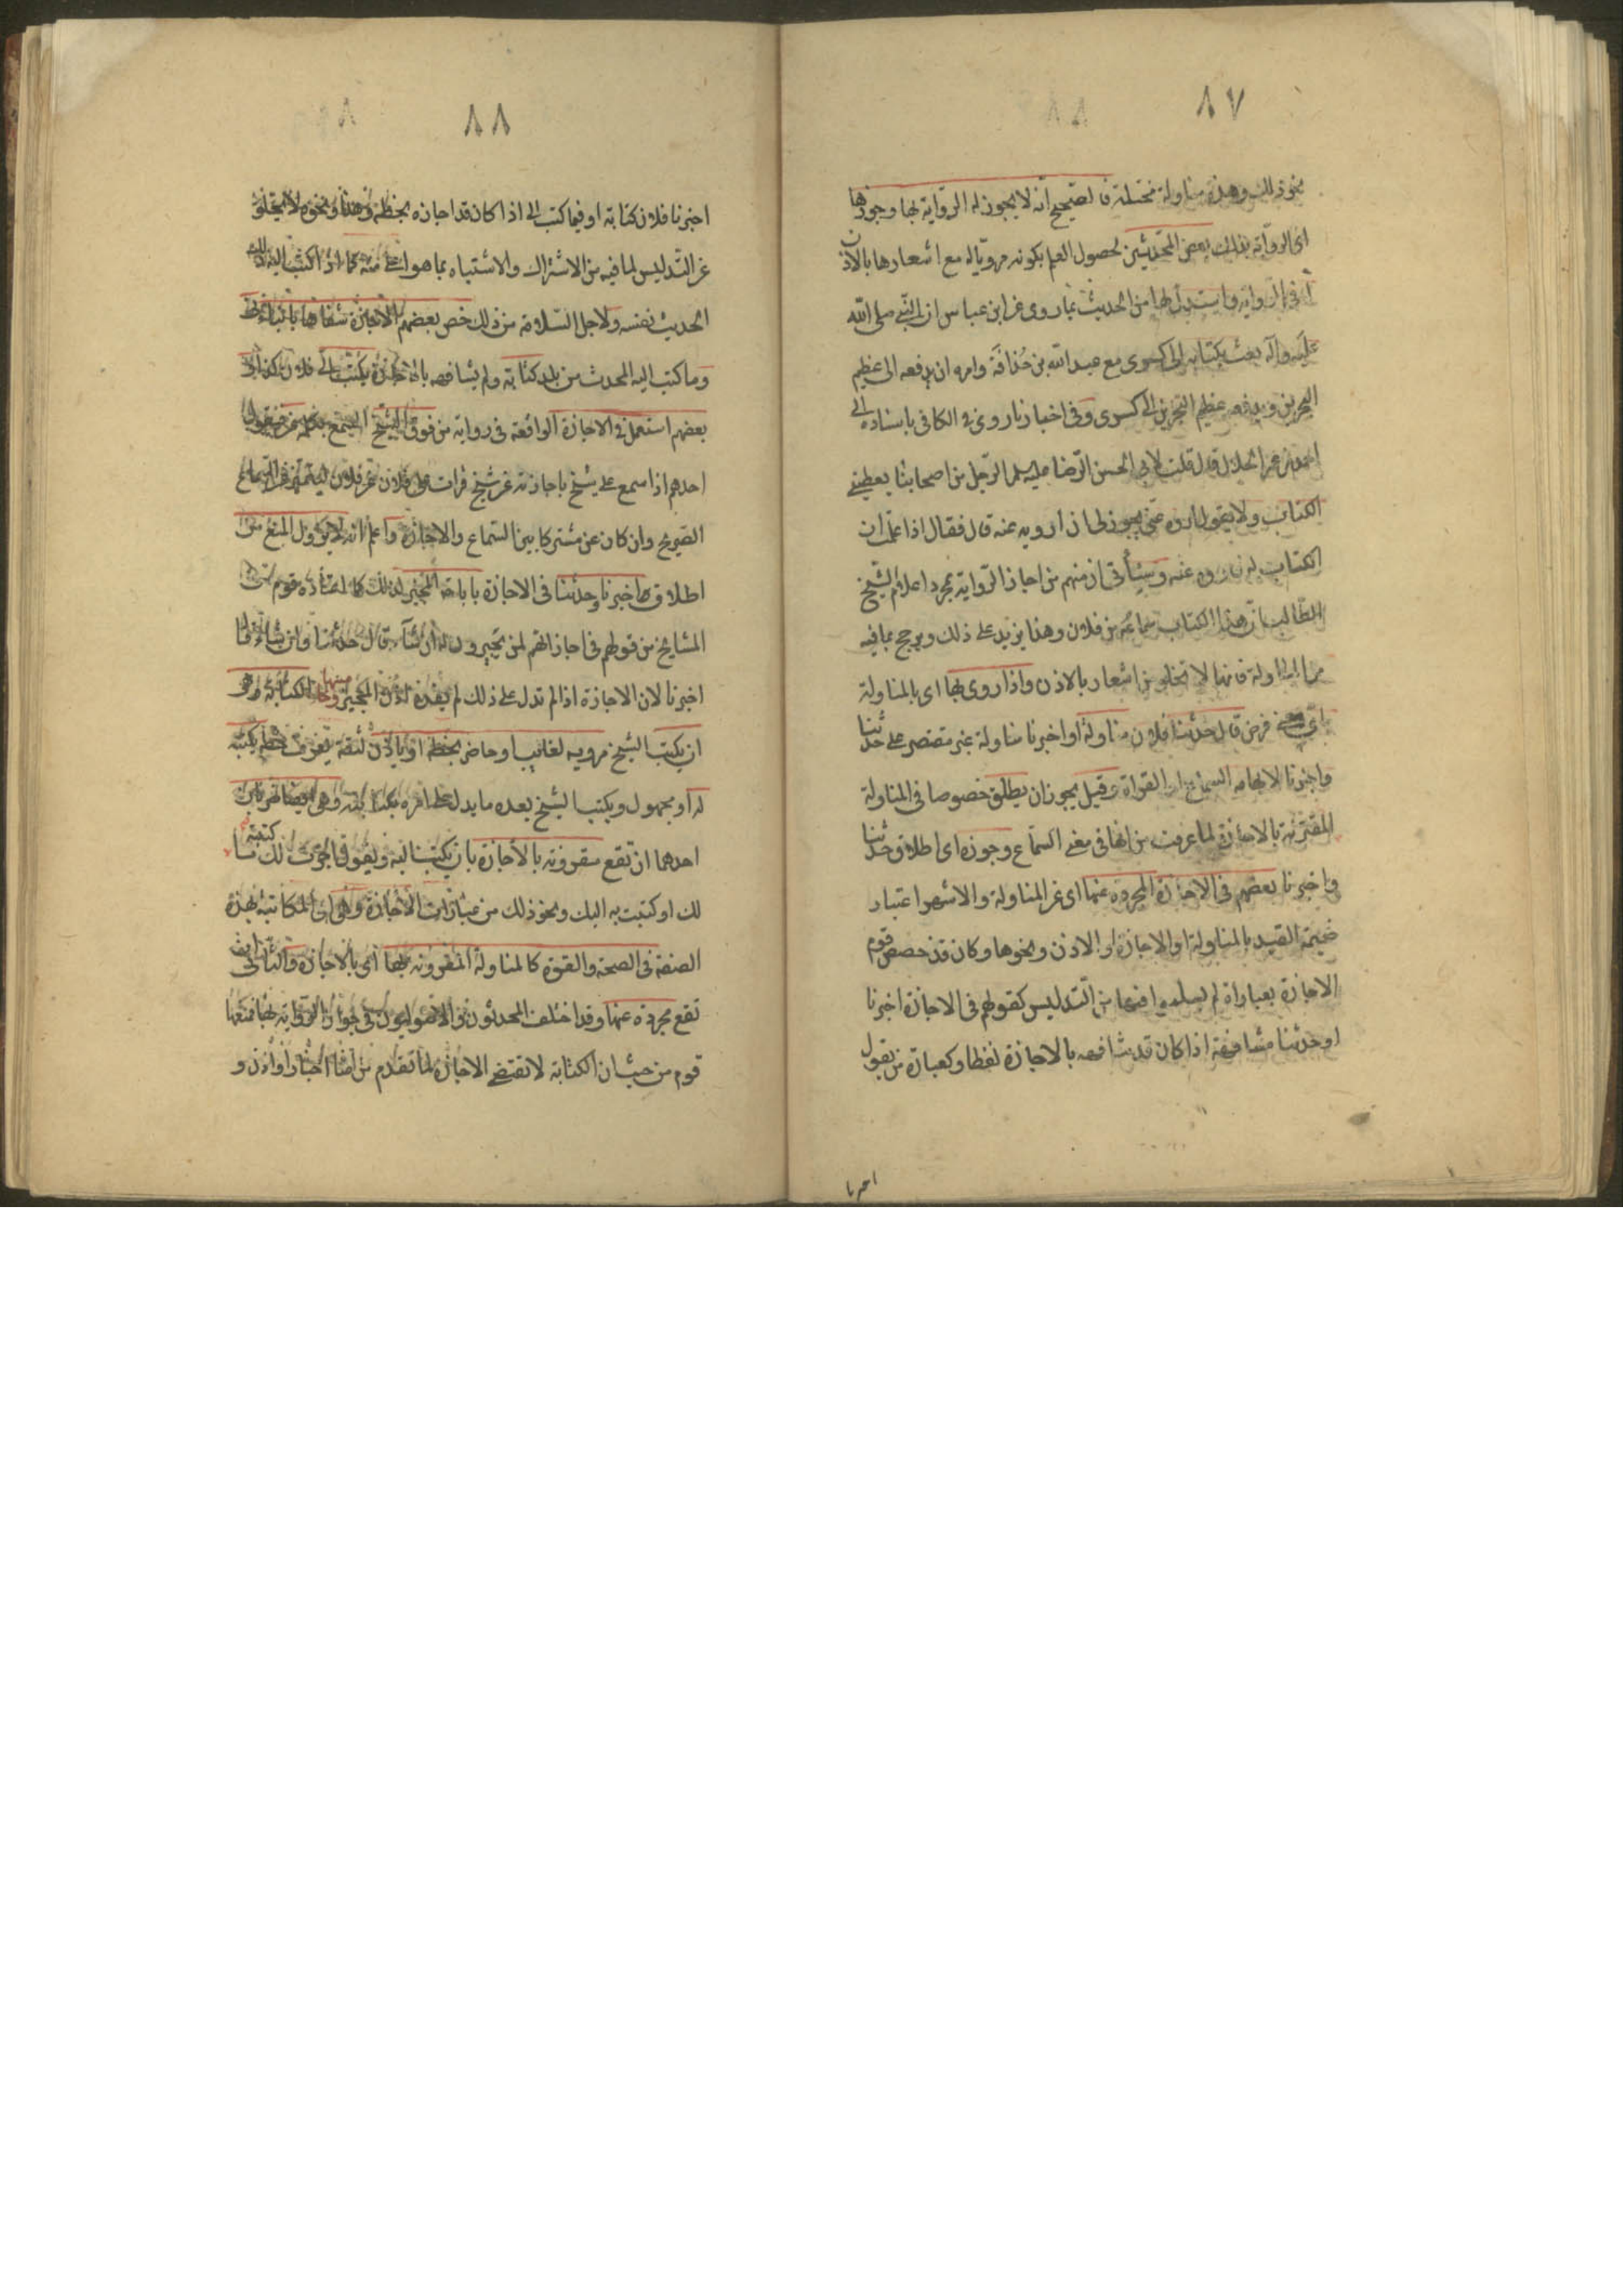 ٨٧
نحو ذلك وهذه مناولة مختلة فالصحيح انه لا يجوز له الرواية بها وجوزها
اى الرواية بذلك بعض المحدثين لحصول العلم بكونه مرويا له مع اشعارها بالاذن
له فى الرواية واستدل لها من الحديث بما روى عن ابن عباس ان النبى صلى الله
عليه وآله بعث بكتابه الى كسرى مع عبد الله بن حذافة وامره ان يدفعه الى عظيم
البحرين ويدفعه عظيم البحرين الى كسرى وفى اخبارنا روى فى الكافى باسناده الى
احمد بن عمر الحلال قال قلت لابى الحسن الرضا عليه السلم الرجل من اصحابنا يعطينى
الكتاب ولا يقول اروه عنى يجوز لى ان ارويه عنه قال فقال اذا علمت ان
الكتاب له فاروه عنه وسيأتى ان منهم من اجاز الرواية بمجرد اعلام الشيخ
الطالب ان هذا الكتاب سماعه من فلان وهذا يزيد على ذلك ويرجح بما فيه
من المناولة فانها لا تخلو من اشعار بالاذن واذا روى بها اى بالمناولة
باى معنى فرض قال حدثنا فلان مناولة او اخبرنا مناولة غير مقتصر على حدثنا
واخبرنا لايهامه السماع او القراة وقيل يجوز ان يطلق خصوصا فى المناولة
المقترنة بالاجازة لما عرفت من انها فى معنى السماع وجوزه اى اطلاق حدثنا
واخبرنا بعضهم فى الاجازة المجردة عنها اى عن المناولة والاشهر اعتبار
ضميمة القيد بالمناولة او الاجازة او الاذن ونحوها وكان قد خصص قوم
الاجازة بعباراة لم يسلموا فيها من التدليس كقولهم فى الاجازة اخبرنا
او حدثنا مشافهة اذا كان قد شافهه بالاجازة لفظا وكعبارة من يقول
اخبرنا
٨٨
اخبرنا فلان كتابة او فيما كتب الى اذا كان قد اجازه بخطه وهذا ونحوه لا يخلو
عن التدليس لما فيه من الاشتراك والاشتباه بما هو اعلى منه كما اذا كتب اليه ذلك
الحديث نفسه ولاجل السلامة من ذلك خص بعضهم الاجازة شفاها بانبأنى
وما كتب اليه المحدث من بلد كتابة ولم يشافهه بالاجازة بكتب الى فلان كذا و
بعضهم استعمل فى الاجازة الواقعة فى رواية من فوق الشيخ المسمع بكلمة عن فيقول
احدهم اذا سمع على شيخ باجازته عن شيخ قرات على فلان عن فلان ليتميز عن السماع
الصريح وان كان عن مشتركا بين السماع والاجازة واعلم انه لا يزول المنع من
اطلاق اخبرنا وحدثنا فى الاجازة باباحة المجيز لذلك كما اعتاده قوم من
المشايخ من قولهم فى اجازاتهم لمن يجيزون له ان شاء قال حدثنا وان شاء قال
اخبرنا لان الاجازة اذا لم تدل على ذلك لم يفده اذن المجيز وخامسها الكتابة وهو
ان يكتب الشيخ مرويه لغائب او حاضر بخطه او ياذن لثقة يعرف خطه يكتبه
له او مجهول ويكتب الشيخ بعده ما يدل على امره بكتابته وهى ايضا ضربان
احدهما ان تقع مقرونة بالاجازة بان يكتب اليه ويقول اجزت لك ما كتبته
لك او كتبت به اليك ونحو ذلك من عبارات الاجازة وهى اى المكاتبة بهذه
الصفة فى الصحة والقوة كالمناولة المقرونة بها اى بالاجازة والثانى ان
تقع مجردة عنها وقد اختلف المحدثون والاصوليون فى جواز الرواية بها فمنعها
قوم من حيث ان الكتابة لا تقتضى الاجازة لما تقدم من انها اخبار او اذن و